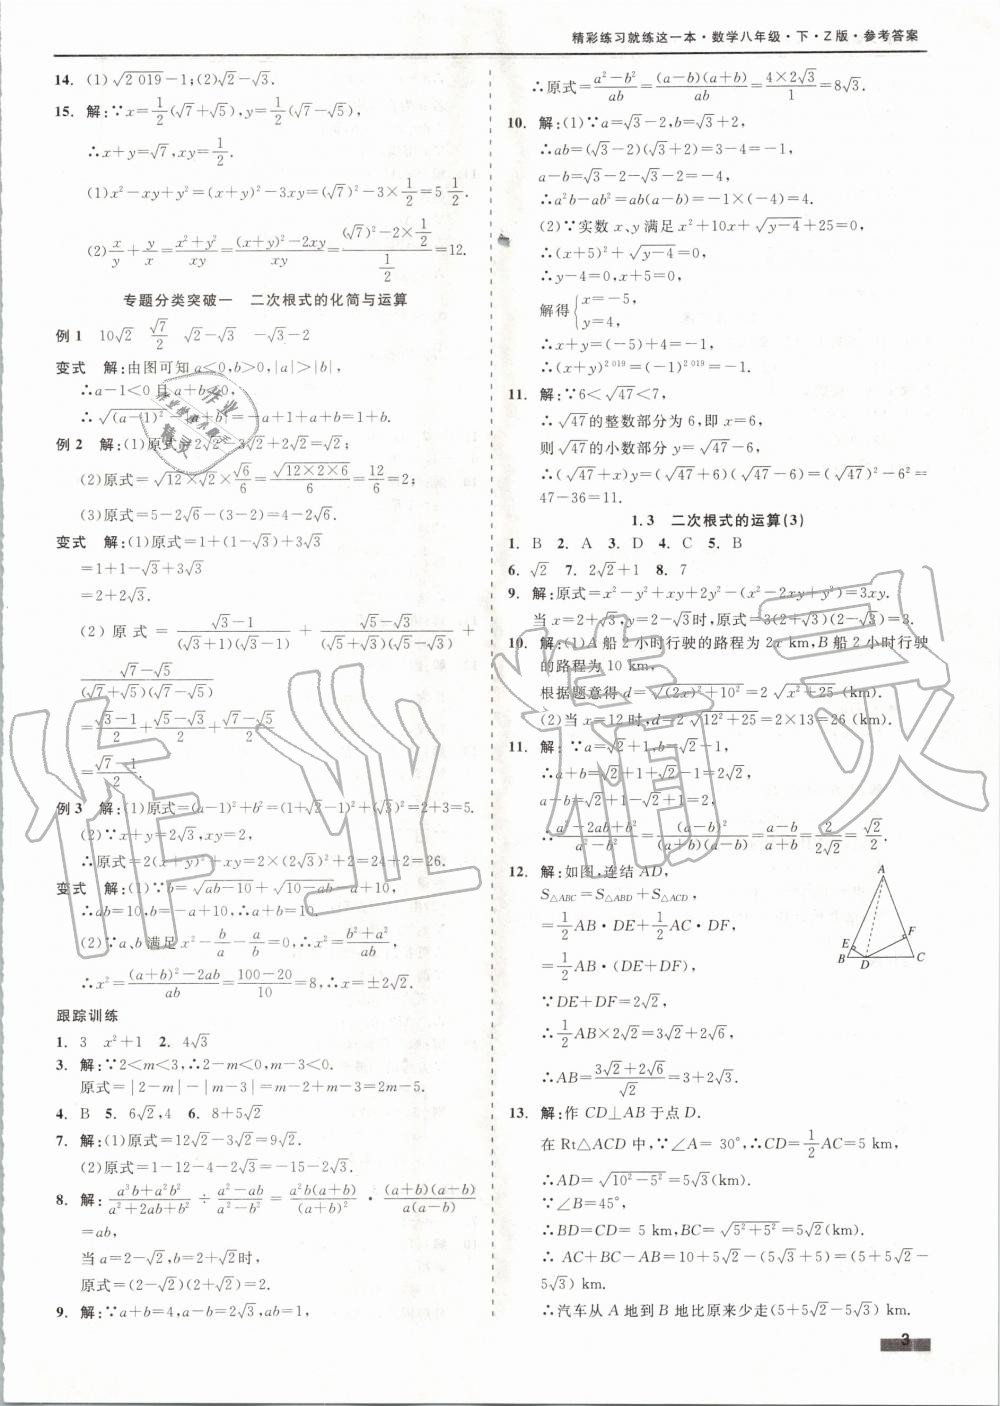 精彩练习就练这一本·数学八年级·下·Z版·参考答案
14. (1)√(2 019)-1;(2)√2-√3.
15. 解:∵x=1/2(√7+√5),y=1/2(√7-√5),
∴x+y=√7,xy=1/2.
(1)x²-xy+y²=(x+y)²-3xy=(√7)²-3×1/2=5 1/2.
(2)x/y+y/x=(x²+y²)/xy=((x+y)²-2xy)/xy=((√7)²-2×1/2)/(1/2)=12.
专题分类突破一 二次根式的化简与运算
例1 10√2 √7/2 √2-√3 -√3-2
变式 解:由图可知a<0,b>0,|a|>|b|,
∴a-1<0且a+b<0,
∴√((a-1)²)-|a+b|=-a+1+a+b=1+b.
例2 解:(1)原式=2√2-3√2+2√2=√2.
(2)原式=√12×√2×√6/6=√(12×2×6)/6=12/6=2;
(3)原式=5-2√6-(3-2)=4-2√6.
变式 解:(1)原式=1+(1-√3)+3√3
=1+1-√3+3√3
=2+2√3.
(2)原式=(√3-1)/((√3+1)(√3-1))+(√5-√3)/((√5+√3)(√5-√3))+
(√7-√5)/((√7+√5)(√7-√5))
=(√3-1)/2+(√5-√3)/2+(√7-√5)/2
=(√7-1)/2.
例3 解:(1)原式=(a-1)²+b²=(1+√2-1)²+(√3)²=2+3=5.
(2)∵x+y=2√3,xy=2,
∴原式=2(x+y)²+xy=2×(2√3)²+2=24+2=26.
变式 解:(1)∵b=√(ab-10)+√(10-ab)-a+10,
∴ab=10,b=-a+10,∴a+b=10.
(2)∵a、b满足x²-b/a-a/b=0,∴x²=(b²+a²)/ab,
∴x²=((a+b)²-2ab)/ab=(100-20)/10=8,∴x=±2√2.
跟踪训练
1. 3 x²+1 2. 4√3
3. 解:∵2<m<3,∴2-m<0,m-3<0.
原式=|2-m|-|m-3|=m-2+m-3=2m-5.
4. B 5. 6√2,4 6. 8+5√2
7. 解:(1)原式=12√2-3√2=9√2.
(2)原式=1-12-4-2√3=-15-2√3.
8. 解:(a³b+a²b²)/(a²+2ab+b²)÷(a²-ab)/(a²-b²)=a²b(a+b)/(a+b)²·(a+b)(a-b)/a(a-b)
=ab,
当a=2-√2,b=2+√2时,
原式=(2-√2)(2+√2)=2.
9. 解:∵a+b=4,a-b=2√3,ab=1,
∴原式=(a²-b²)/ab=(a-b)(a+b)/ab=(4×2√3)/1=8√3.
10. 解:(1)∵a=√3-2,b=√3+2,
∴ab=(√3-2)(√3+2)=3-4=-1,
a-b=√3-2-√3-2=-4.
∴a²b-ab²=ab(a-b)=-1×(-4)=4.
(2)∵实数x、y满足x²+10x+√(y-4)+25=0,
∴(x+5)²+√(y-4)=0.
∴y-4=0,(x+5)²=0.
解得{x=-5,
y=4,
∴x+y=(-5)+4=-1,
∴(x+y)^2 019=(-1)^2 019=-1.
11. 解:∵6<√47<7,
∴√47的整数部分为6,即x=6,
则√47的小数部分y=√47-6,
∴(√47+x)y=(√47+6)(√47-6)=(√47)²-6²=
47-36=11.
1.3 二次根式的运算(3)
1. B 2. A 3. D 4. C 5. B
6. √2 7. 2√2+1 8. 7
9. 解:原式=x²-y²+xy+2y²-(x²-2xy+y²)=3xy.
当x=2+√3,y=2-√3时,原式=3(2+√3)(2-√3)=3.
10. 解:(1)A船2小时行驶的路程为2x km,B船2小时行驶
的路程为10 km,
根据题意得d=√((2x)²+10²)=2√(x²+25)(km).
(2)当x=12时,d=2√(12²+25)=2×13=26(km).
11. 解:∵a=√2+1,b=√2-1,
∴a+b=√2+1+√2-1=2√2,
a-b=√2+1-√2+1=2,
∴(a²-2ab+b²)/(a²-b²)=(a-b)²/(a+b)(a-b)=(a-b)/(a+b)=2/(2√2)=√2/2.
12. 解:如图,连结AD,
S△ABC=S△ABD+S△ACD,
=1/2AB·DE+1/2AC·DF,
=1/2AB·(DE+DF),
∵DE+DF=2√2,
∴1/2AB×2√2=3√2+2√6,
∴AB=(3√2+2√6)/√2=3+2√3.
A
E
F
B
D
C
13. 解:作CD⊥AB于点D.
在Rt△ACD中,∵∠A=30°,∴CD=1/2AC=5 km,
∴AD=√(10²-5²)=5√3(km).
∵∠B=45°,
∴BD=CD=5 km,BC=√(5²+5²)=5√2(km).
∴AC+BC-AB=10+5√2-(5√3+5)=(5+5√2-
5√3)km.
∴汽车从A地到B地比原来少走(5+5√2-5√3)km.
3
作业精灵